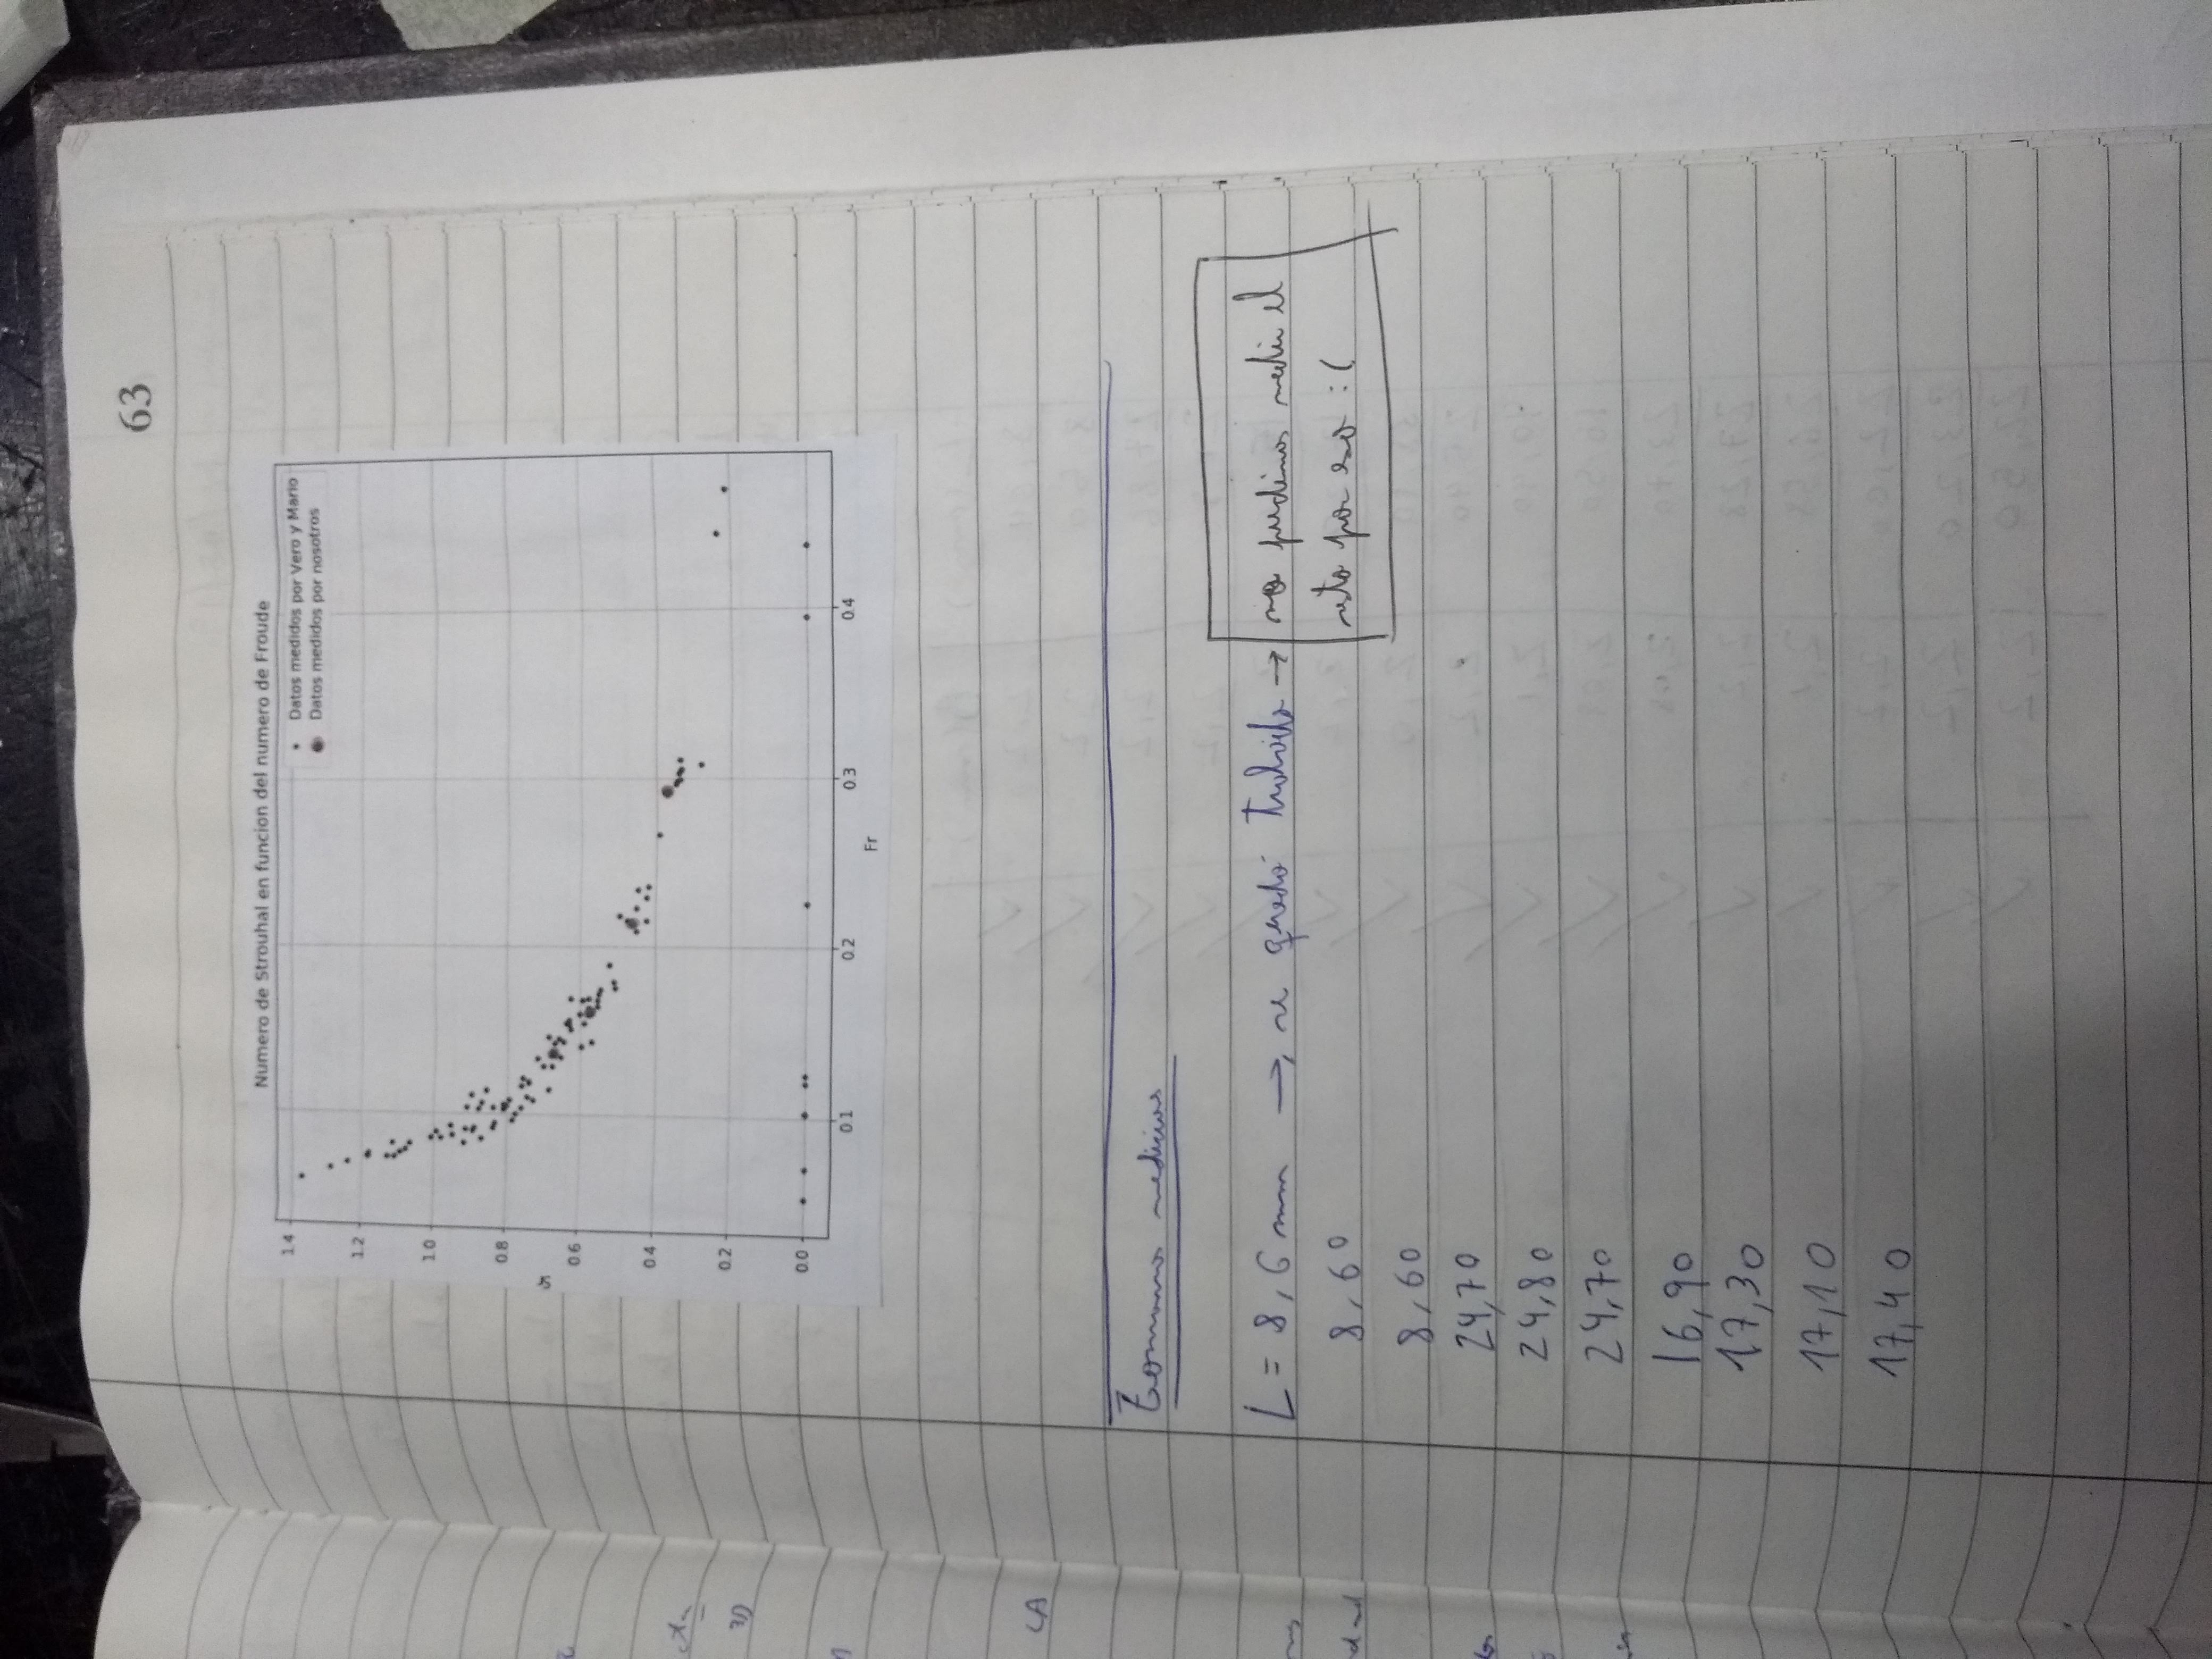 63
Numero de Strouhal en funcion del numero de Froude
Datos medidos por Vero y Mario
Datos medidos por nosotros
1.4
1.2
1.0
0.8
0.6
0.4
0.2
0.0
St
0.1
0.2
0.3
0.4
Fr
Tomamos medidas
L = 8,6 mm → se quedó trabado → no pudimos medir el
resto por eso :(
8,60
8,60
24,70
24,80
24,70
16,90
17,30
17,10
17,40